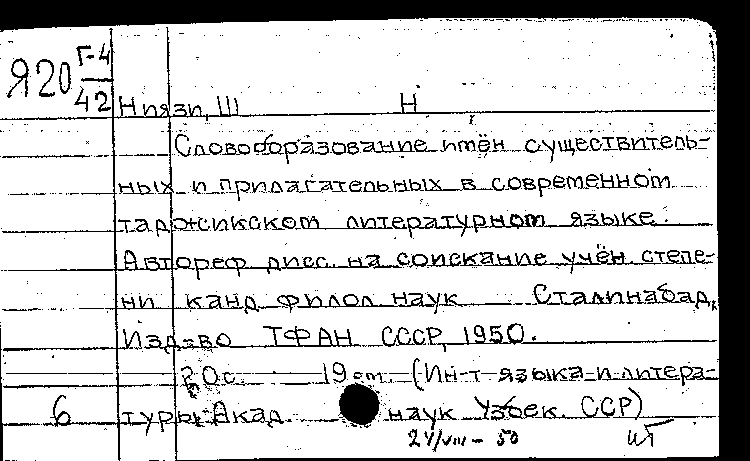 Я20 Г-4
42
Ниязи, Ш Н
Словообразование имён существитель-
ных и прилагательных в современном
таджикском литературном языке.
Автореф дисс. на соискание учён степе-
ни канд филол наук Сталинабад,
Изд-во ТФАН СССР, 1950.
20с. 19 см. (Ин-т языка и литера-
6 туры Акад. наук Узбек. ССР)
24/VIII - 50